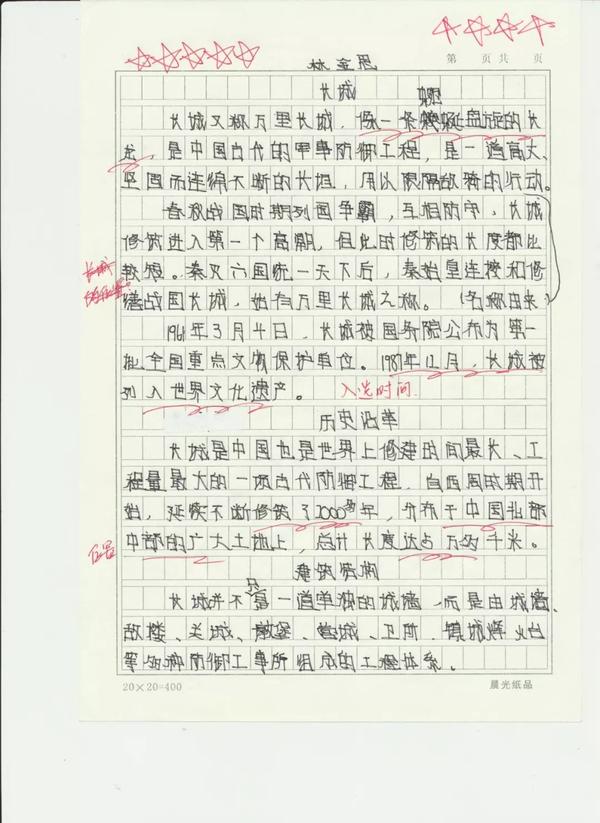 第 页 共 页
林金恩
长城
长城又称万里长城，像一条蜿蜒盘旋的长
龙，是中国古代的军事防御工程，是一道高大、
坚固而连绵不断的长垣，用以限隔敌骑的行动。
春秋战国时期列国争霸，互相防守，长城
修筑进入第一个高潮，但此时修筑的长度都比
较短。秦灭六国统一天下后，秦始皇连接和修
缮战国长城，始有万里长城之称。（名称由来）
长城
1961年3月4日，长城被国务院公布为第一
批全国重点文物保护单位。1987年12月，长城被
列入世界文化遗产。 入选时间
历史沿革
长城是中国也是世界上修建时间最长、工
程量最大的一项古代防御工程，自西周时期开
始，延续不断修筑了2000多年，分布于中国北部
中部的广大土地上，总计长度达占万的千米。
位置
建筑结构
长城并不只是一道单独的城墙，而是由城墙、
敌楼、关城、墩堡、营城、卫所、镇城烽火台
等多种防御工事所组成的工程体系。
20×20=400
晨光纸品